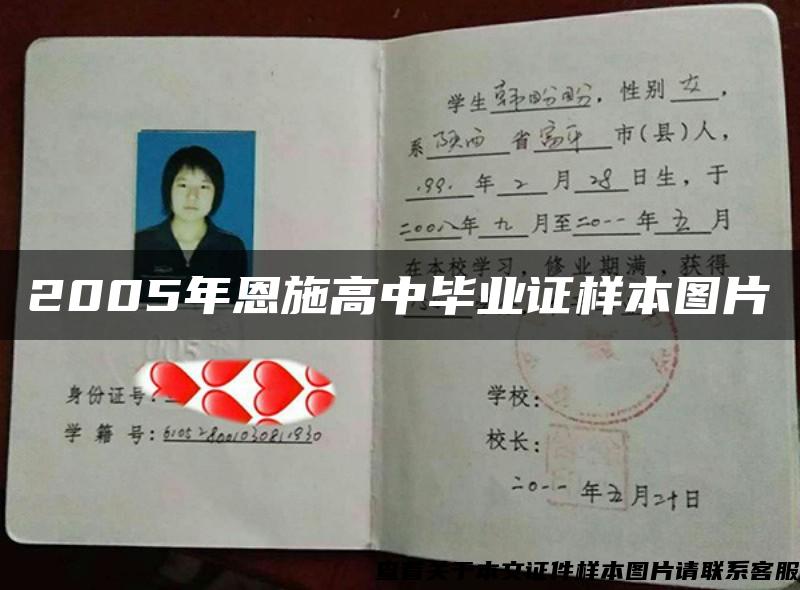 学生韩盼盼，性别女，
系陕西省富平市(县)人，
1991年2月28日生，于
二00八年九月至二0一一年五月
在本校学习，修业期满，获得
2005年恩施高中毕业证样本图片
身份证号：
学籍号：
学校：
校长：
二0一一年五月二十日
查看关于本文证件样本图片请联系客服